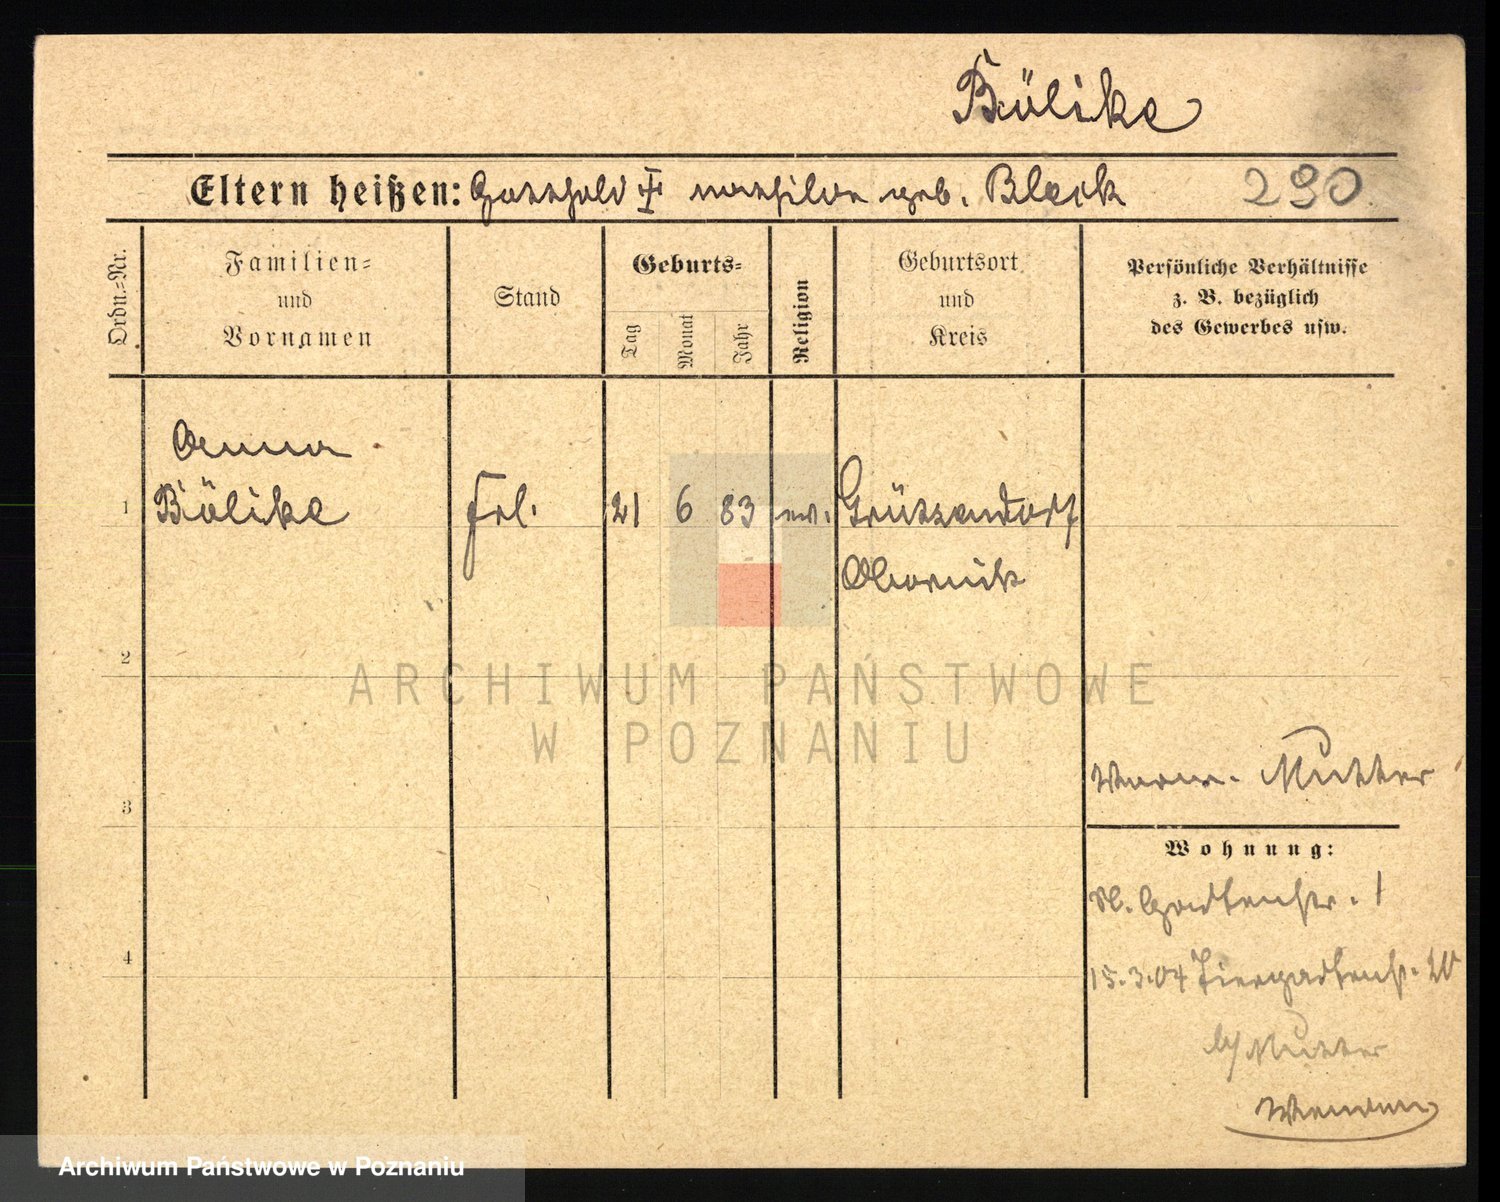 Bölike
Eltern heißen: Gotthold † Mathilde geb. Bleck 290
Ordn.-Nr.
Familien-
und
Vornamen
Stand
Geburts-
Tag
Monat
Jahr
Religion
Geburtsort
und
Kreis
Persönliche Verhältnisse
z. B. bezüglich
des Gewerbes usw.
Anna
1 Bölike Frl. 21 6 83 ev. Grützendorf
Obornik
2
3
Mutter
Wohnung:
Gartenstr. 1
4
15.3.04 Tiergartenstr. 20
b/ Mutter
ARCHIWUM PAŃSTWOWE
W POZNANIU
Archiwum Państwowe w Poznaniu